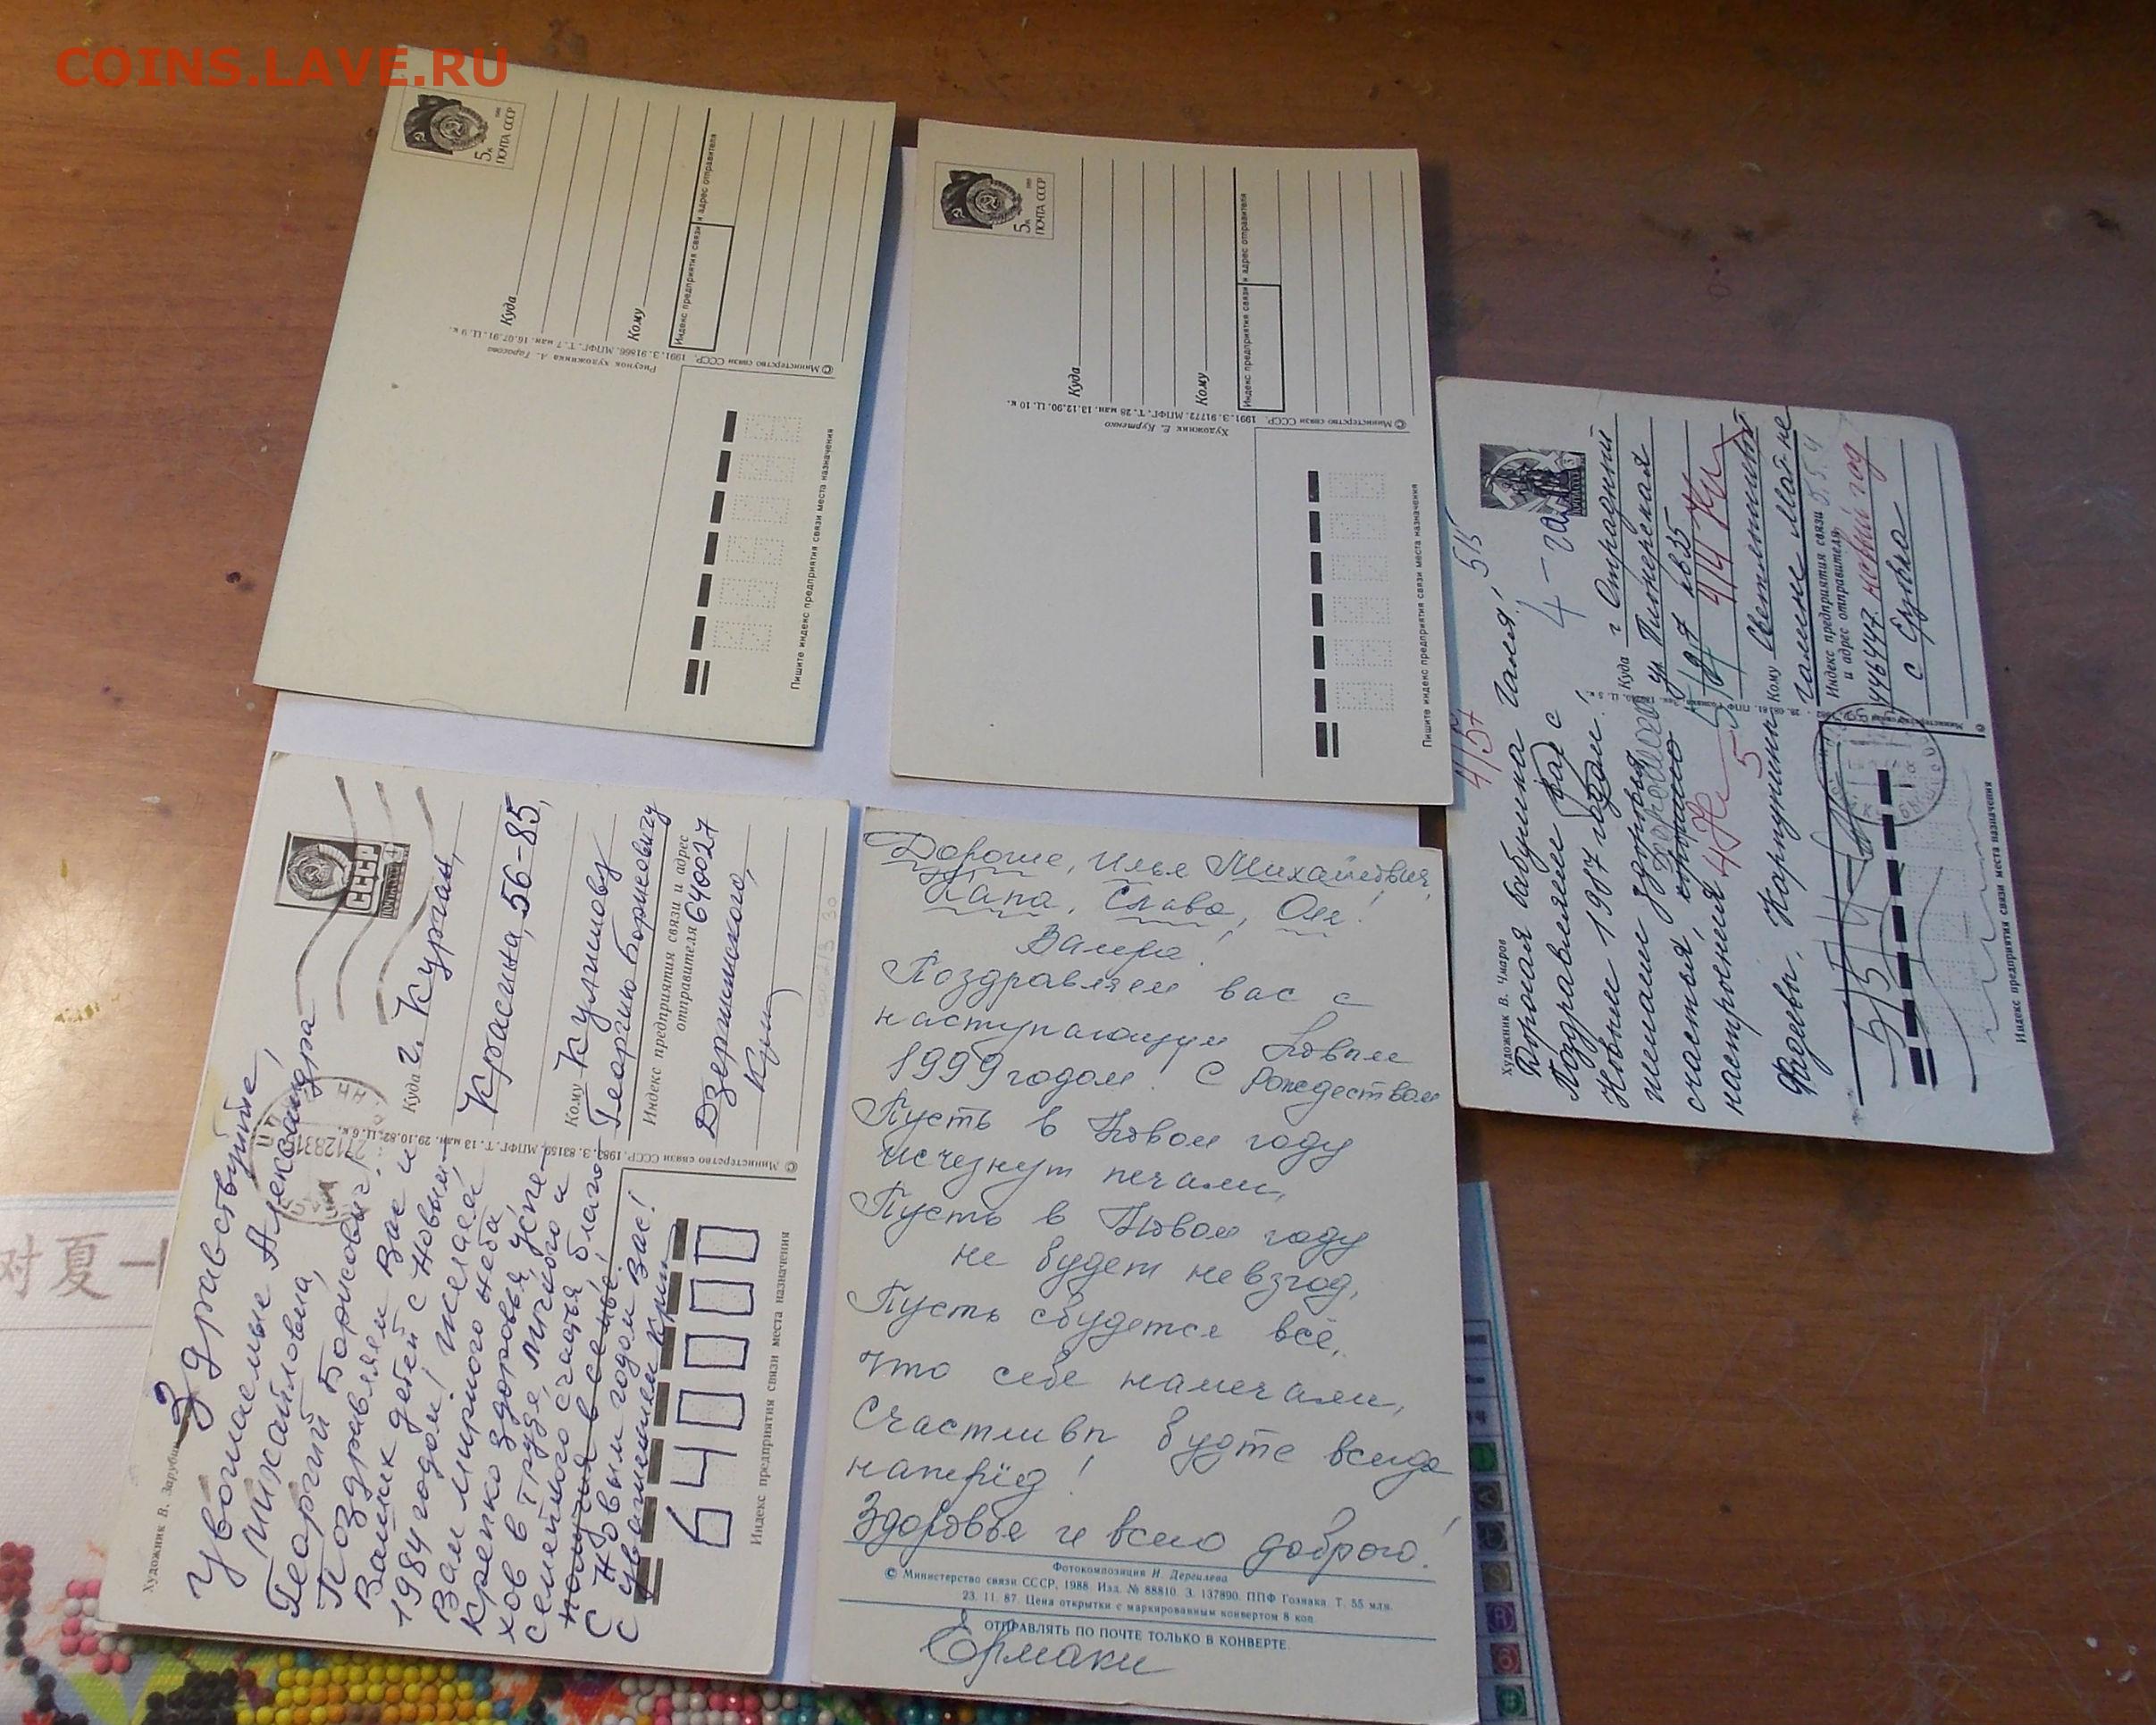 COINS.LAVE.RU
5к
ПОЧТА СССР
Куда
Кому
Индекс предприятия связи и адрес отправителя
© Министерство связи СССР. 1991. З. 91666. МПФГ. Т. 7 млн. 16.07.91. Ц. 9 к.
Рисунок художника А.
Пишите индекс предприятия связи места назначения
5к
ПОЧТА СССР
Куда
Кому
Индекс предприятия связи и адрес отправителя
© Министерство связи СССР. 1991. З. 91772. МПФГ. Т. 28 млн. 13.12.90. Ц. 10 к.
Художник Е. Куртенко
Пишите индекс предприятия связи места назначения
Художник В. Чмаров
Дорогая бабушка Галя!
Поздравляем вас с
Новым 1987 годом!
желаем здоровья
счастья,
настроения
Фадеевы.
515
Куда г Отрадный
ул Пионерская
кв 25
Кому
Галине
Индекс предприятия связи
и адрес отправителя
446447 новый год
с
515
Индекс предприятия связи места назначения
Художник В. Зарубин
Здравствуйте,
уважаемые Александра
Михайловна,
Георгий Борисович!
Поздравляем Вас и
Ваших детей с Новым
1984 годом! Желаем
Вам мирного неба
крепко здоровья, успе-
хов в труде, личного и
семейного счастья, благо-
получия в семье!
С Новым годом Вас!
С уважением
СССР
4
Куда г. Курган,
Красина, 56-85,
Кому Куликову
Георгию Борисовичу
Индекс предприятия связи и адрес
отправителя 640027
Дзержинского,
© Министерство связи СССР. 1983. З. 83159. МПФГ. Т. 13 млн. 29.10.82. Ц. 6 к.
640000
Индекс предприятия связи места назначения
Дорогие, Илья Михайлович,
Папа, Слава, Оля!
Валера!
Поздравляем вас с
наступающим Новым
1999 годом! С Рождеством
Пусть в Новом году
исчезнут печали,
Пусть в Новом году
не будет невзгод,
Пусть сбудется всё,
что себе намечали,
Счастливы будте всегда
наперёд!
Здоровья и всего доброго!
Фотокомпозиция И. Дергилева
© Министерство связи СССР, 1988. Изд. № 88810. З. 137890. ППФ Гознака. Т. 55 млн.
23. 11. 87. Цена открытки с маркированным конвертом 8 коп.
ОТПРАВЛЯТЬ ПО ПОЧТЕ ТОЛЬКО В КОНВЕРТЕ
Ермаки
对夏一